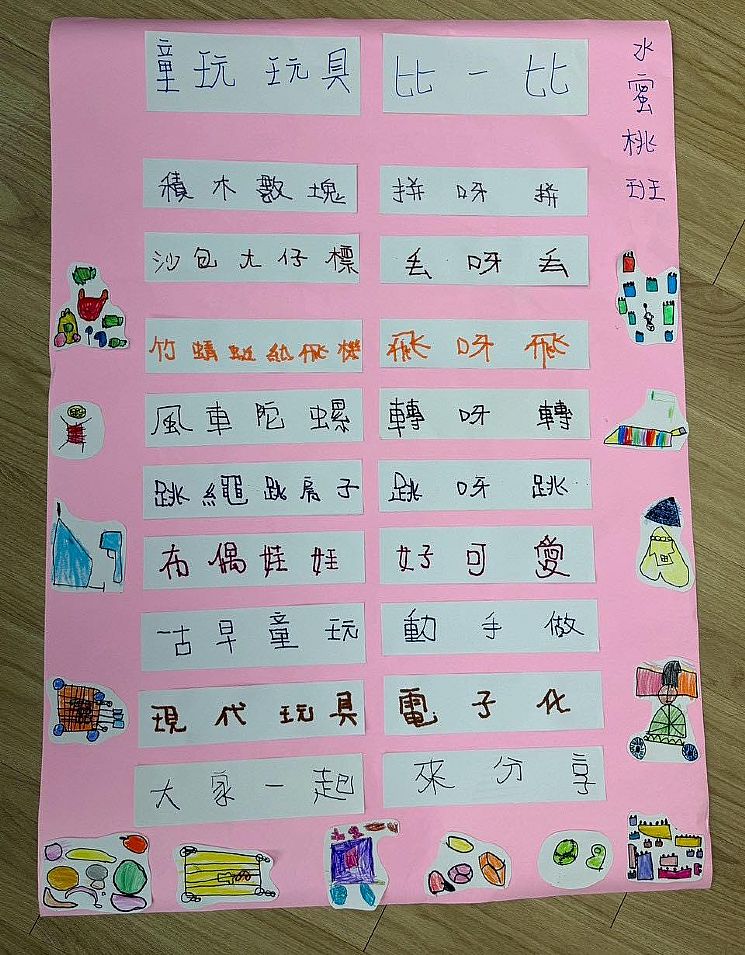 童玩玩具 比一比
水蜜桃班
積木數塊 拼呀拼
沙包尢仔標 丟呀丟
竹蜻蜓紙飛機 飛呀飛
風車陀螺 轉呀轉
跳繩跳房子 跳呀跳
布偶娃娃 好可愛
古早童玩 動手做
現代玩具 電子化
大家一起 來分享